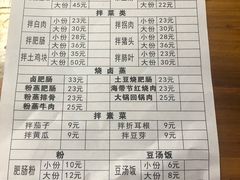 大份 45元 大份 22元
拌菜类
拌白肉 小份 18元 拌拐肉 小份 23元
大份 25元 大份 30元
拌肥肠 小份 大份 拌猪头 小份 大份
拌土鸡块 小份 大份 拌肺叶 小份 大份
烧卤蒸
卤肥肠 33元 土豆烧肥肠 23元
粉蒸肥肠 23元 海带节红烧肉 25元
粉蒸排骨 23元 大锅回锅肉 25元
粉蒸牛肉 25元
拌素菜
拌茄子 9元 拌折耳根 9元
拌黄瓜 9元 拌豆芽 9元
粉 豆汤饭
肥肠粉 小份 10元 豆汤饭 小份 6元
大份 12元 大份 8元